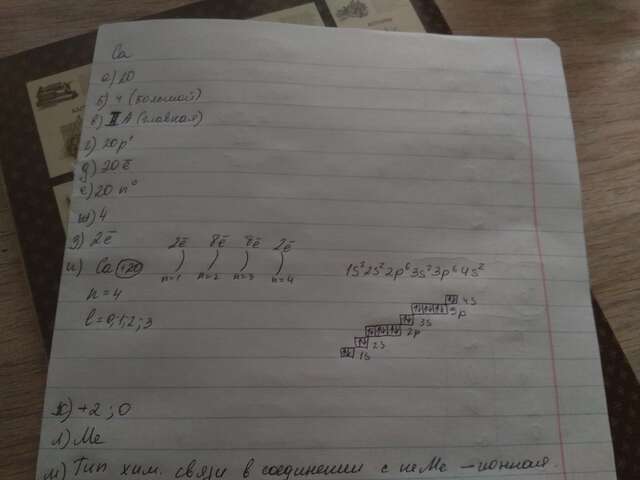 Ca
а) 20
б) 4 (большой)
в) II A (главная)
г) 20 p⁺
д) 20 ē
е) 20 n⁰
ж) 4
з) 2ē
и) Ca +20 ) ) ) )
2ē 8ē 8ē 2ē
n=1 n=2 n=3 n=4
1s² 2s² 2p⁶ 3s² 3p⁶ 4s²
n = 4
l = 0; 1; 2; 3
4s
3p
3s
2p
2s
1s
к) +2; 0
л) Ме
м) Тип хим. связи в соединении с неМе – ионная.